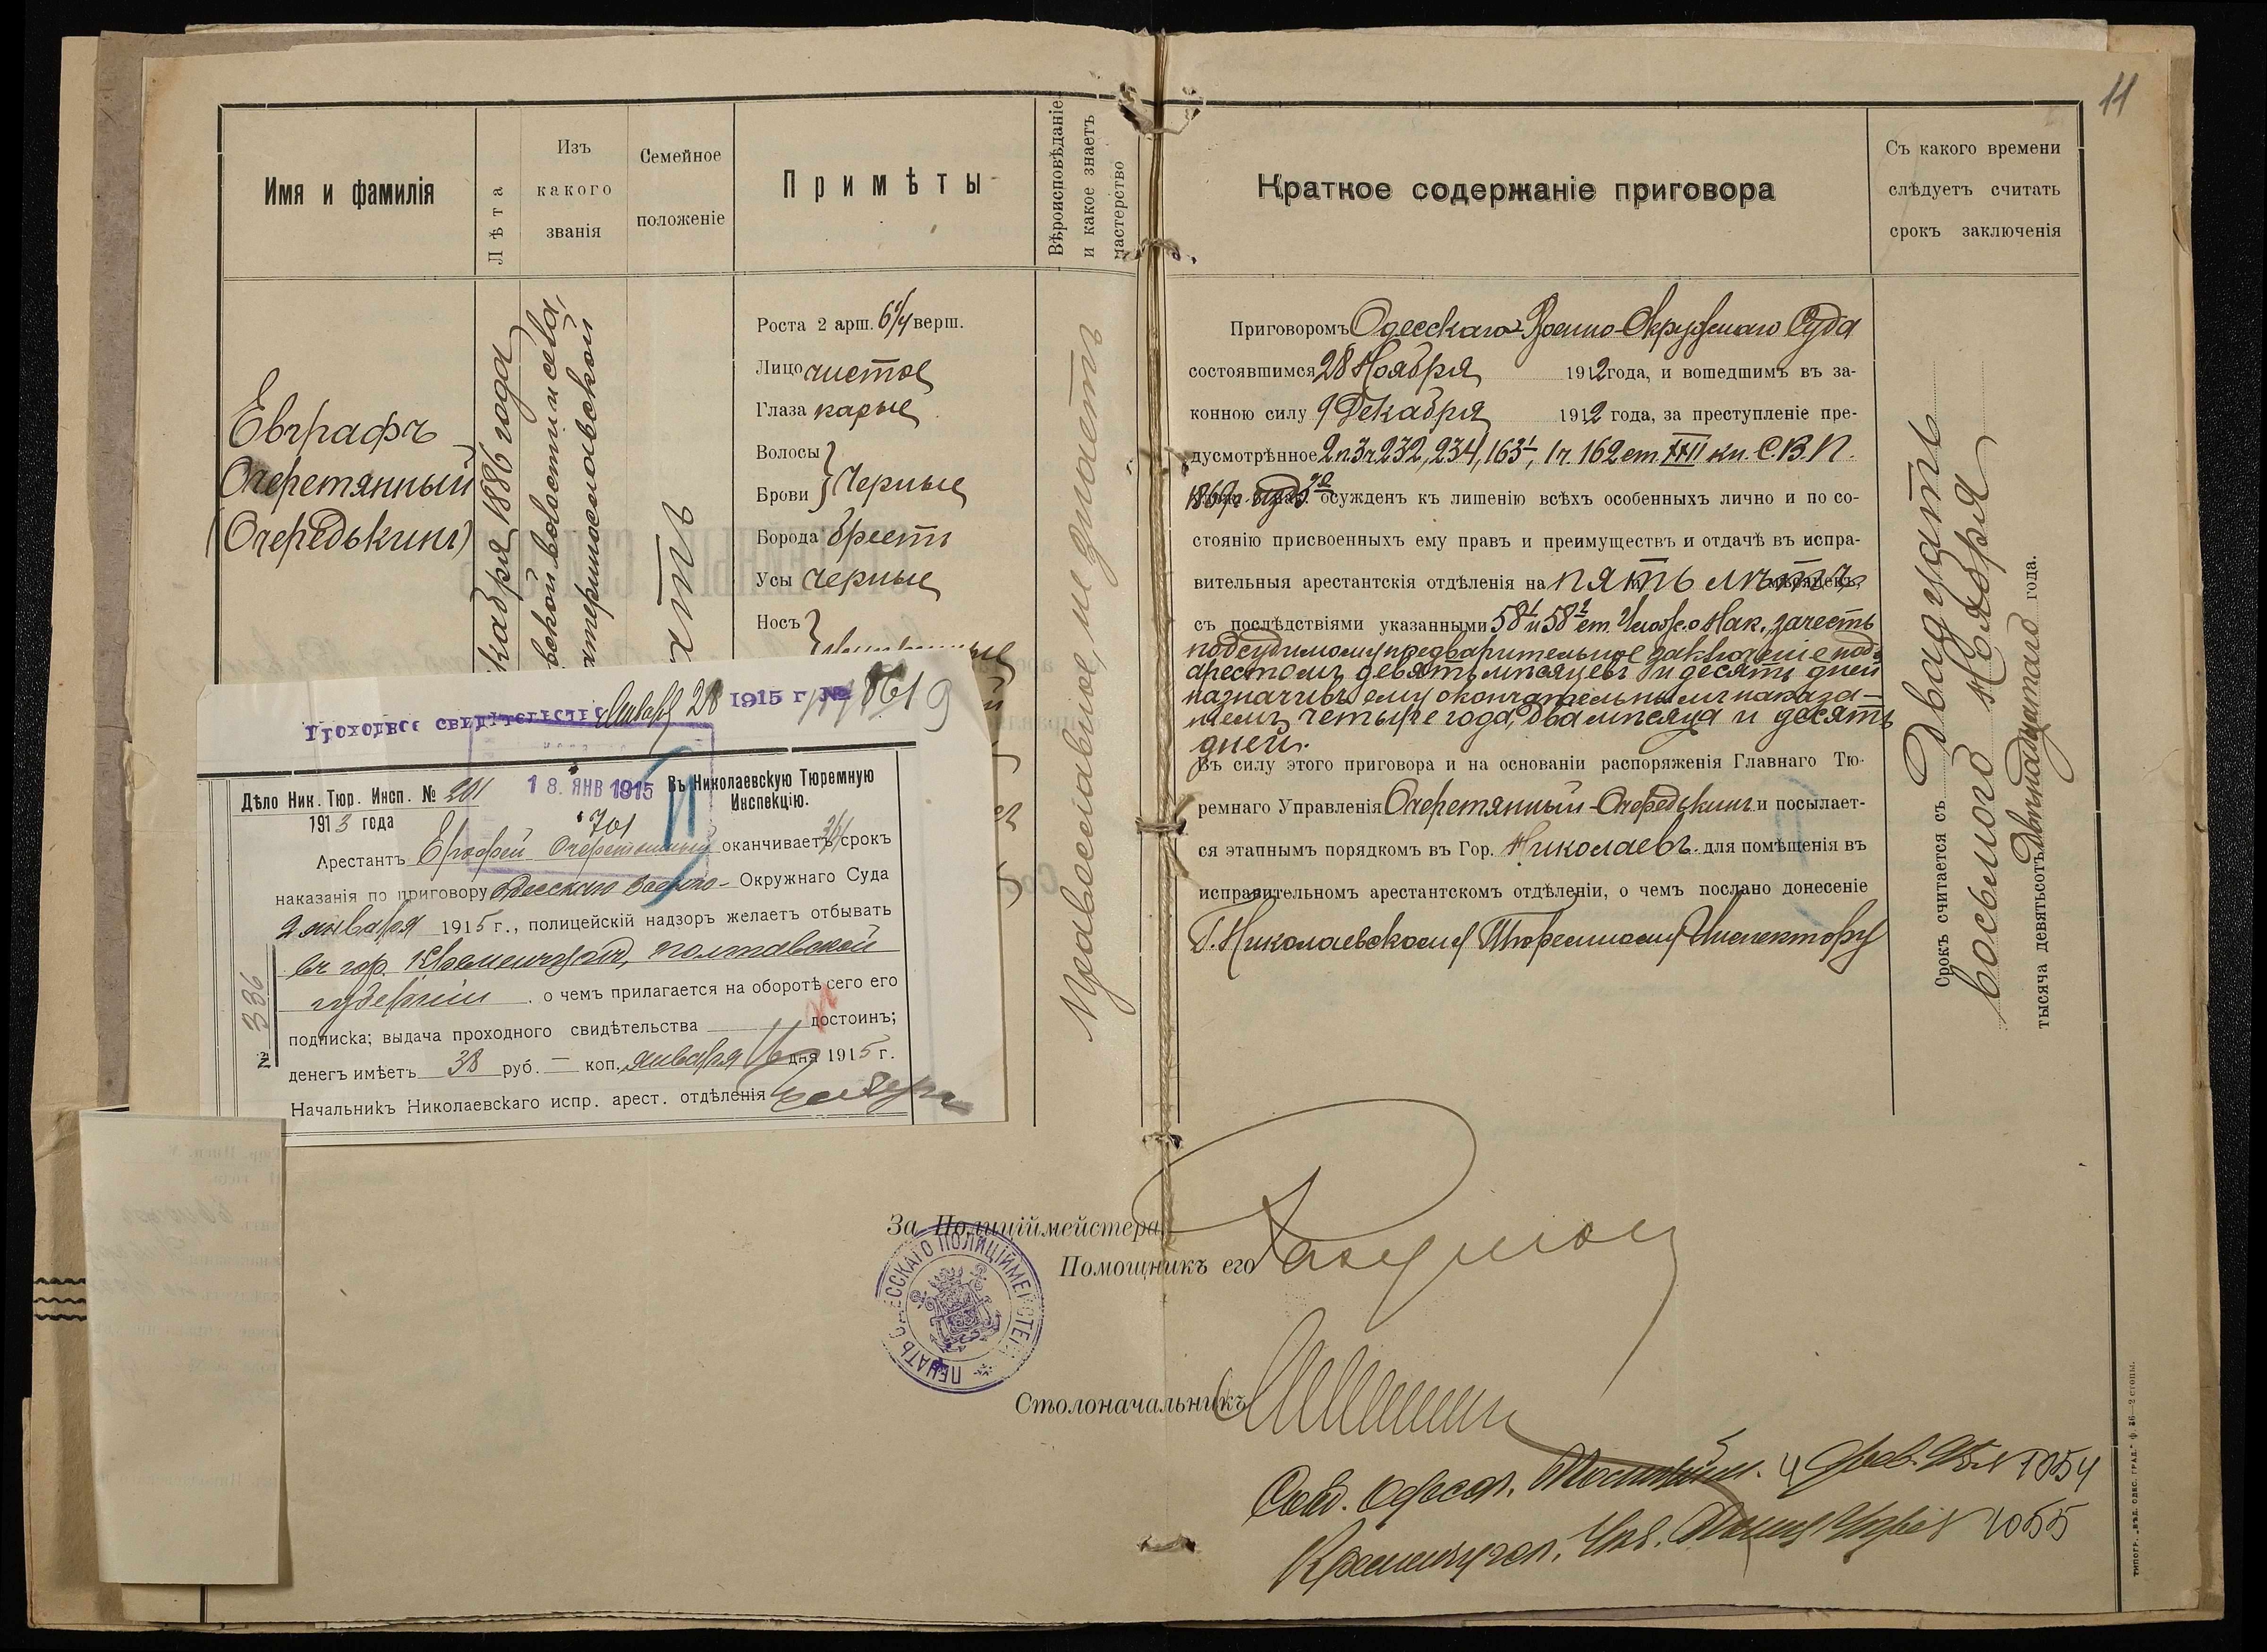 11
Имя и фамилія
Лѣта
Изъ
какого
званія
Семейное
положеніе
Примѣты
Вѣроисповѣданіе
и какое знаетъ
мастерство
Евграфъ
Очеретянный
(Очередькинъ)
кабря 1886 года
вской волости и села,
атеринославской
Роста 2 арш. 6 1/4 верш.
Лицо чистое
Глаза карые
Волосы
Брови } Черные
Борода брѣетъ
Усы черные
Носъ
Православное, не знаетъ
Проходное свидѣтельство Января 28 1915 г №
18. ЯНВ 1915
Дѣло Ник. Тюр. Инсп. № 201
1913 года
Въ Николаевскую Тюремную
Инспекцію.
701
Арестантъ Ерофей Очеретянный оканчиваетъ срокъ
наказанія по приговору Одесскаго Военно- Окружнаго Суда
2 января 1915 г., полицейскій надзоръ желаетъ отбывать
въ гор. Кременчугѣ, Полтавской
губерніи, о чемъ прилагается на оборотѣ сего его
подписка; выдача проходного свидѣтельства достоинъ;
денегъ имѣетъ 38 руб. — коп. января 16 дня 1915 г.
Начальникъ Николаевскаго испр. арест. отдѣленія
№ 336
Краткое содержаніе приговора
Съ какого времени
слѣдуетъ считать
срокъ заключенія
Приговоромъ Одесскаго Военно-Окружнаго Суда
состоявшимся 28 Ноября 1912 года, и вошедшимъ въ за-
конную силу 9 Декабря 1912 года, за преступленіе пре-
дусмотрѣнное 2 п. 3 ч 232, 234, 163¹, 1 ч. 162 ст XXII кн. С.В.П.
1869 г. изд 3го осужденъ къ лишенію всѣхъ особенныхъ лично и по со-
стоянію присвоенныхъ ему правъ и преимуществъ и отдачѣ въ испра-
вительныя арестантскія отдѣленія на пять лѣтъ
съ послѣдствіями указанными 58¹ и 58² ст. Улож. о Нак., зачесть
подсудимому предварительное заключеніе подъ
арестомъ девять мѣсяцевъ и десять дней
назначивъ ему окончательнымъ наказа-
ніемъ четыре года, два мѣсяца и десять
дней.
Въ силу этого приговора и на основаніи распоряженія Главнаго Тю-
ремнаго Управленія Очеретянный-Очередькинъ и посылает-
ся этапнымъ порядкомъ въ Гор. Николаевъ. для помѣщенія въ
исправительномъ арестантскомъ отдѣленіи, о чемъ послано донесеніе
Г. Николаевскому Тюремному Инспектору
Срокъ считается съ Двадцать
восьмого Ноября
тысяча девятьсотъ двѣнадцатаго года.
За Полиціймейстера,
Помощникъ его
ПЕЧАТЬ ОДЕССКАГО ПОЛИЦІЙМЕЙСТЕРА
Столоначальникъ
1054
1055
типогр. „вѣд. одес. град.“ ф. 36—2 стопы.